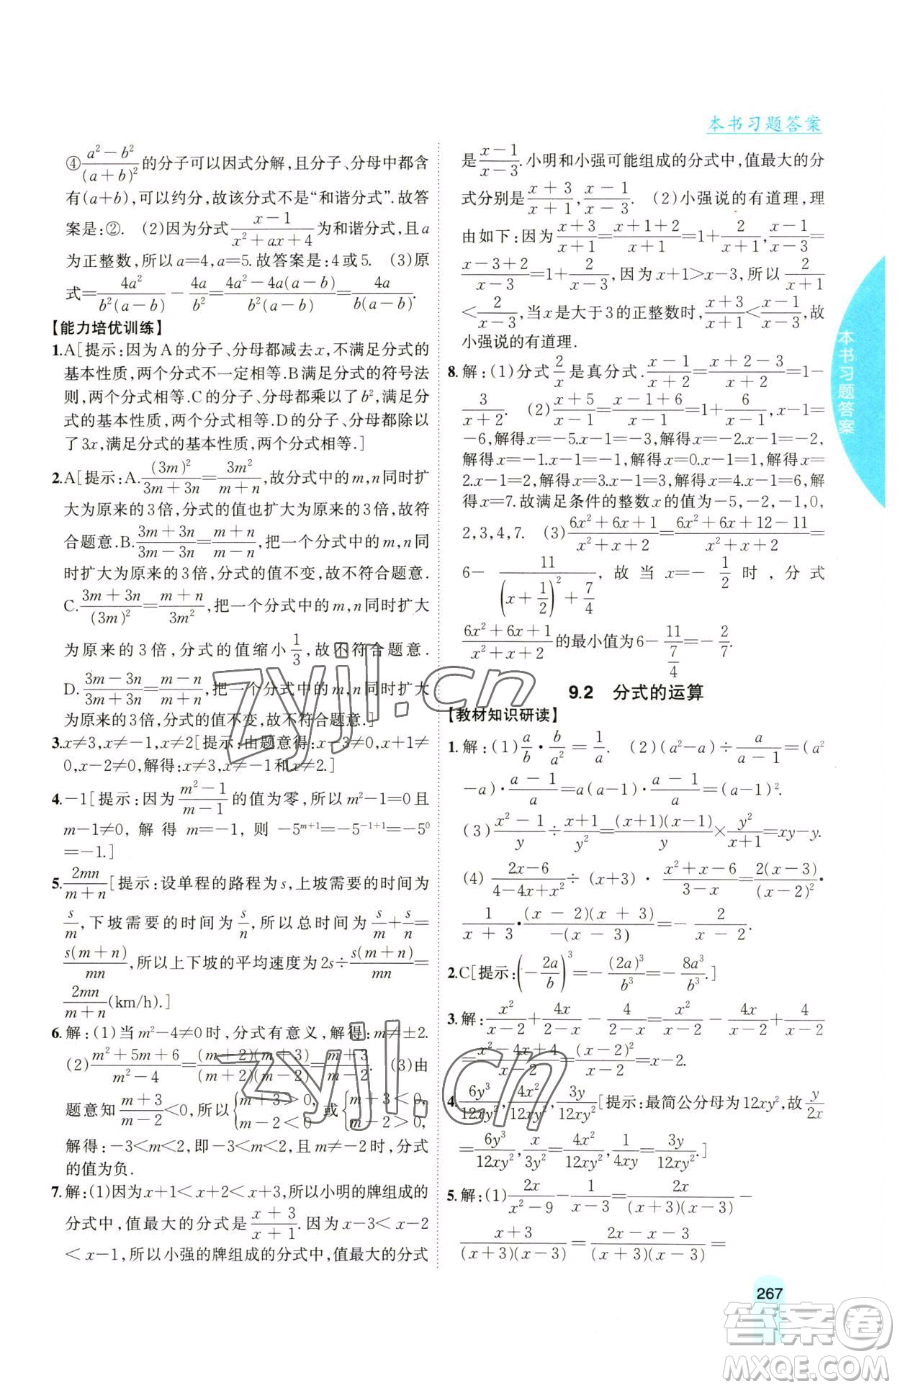 本书习题答案
④(a²-b²)/(a+b)²的分子可以因式分解,且分子、分母中都含有
(a+b),可以约分,故该分式不是“和谐分式”.故答
案是:②. (2)因为分式(x-1)/(x²+ax+4)为和谐分式,且a
为正整数,所以a=4,a=5.故答案是:4或5. (3)原
式=4a²/(b²(a-b))-4a/b²=(4a²-4a(a-b))/(b²(a-b)).
【能力培优训练】
1.A[提示:因为A的分子、分母都减去x,不满足分式的
基本性质,两个分式不一定相等.B.不满足分式的符号法
则,两个分式不相等.C分子、分母都乘以了b²,满足分
式的基本性质,两个分式相等.D的分子、分母都除以
了3x,满足分式的基本性质,两个分式相等.]
2.A[提示:A.(3m)²/(3m+3n)=3m²/(m+n),故分式中的m,n同时扩
大为原来的3倍,分式的值也扩大为原来的3倍,符
合题意.B.(3m+3n)/(3m-3n)=(m+n)/(m-n),把一个分式中的m,n
同时扩大为原来的3倍,分式的值不变,故不符合题意.
C.(3m+3n)/(3m)²=(m+n)/3m²,把一个分式中的m,n同时扩大
为原来的3倍,分式的值缩小1/3,故不符合题意.
D.(3m-3n)/(3m+3n)=(m-n)/(m+n),把一个分式中的m,n同时扩大
为原来的3倍,分式的值不变,故不符合题意.]
3.x≠3,x≠-1,x≠2[提示:由题意得:x-3≠0,x+1≠
0,x-2≠0,解得:x≠3,x≠-1和x≠2.]
4.-1[提示:因为(m²-1)/(m-1)的值为零,所以m²-1=0且
m-1≠0,解得m=-1,则-5ᵐ⁺¹=-5⁻¹⁺¹=-5⁰
=-1.]
5.2mn/(m+n)[提示:设单程的路程为s,上坡需要的时间为
s/m,下坡需要的时间为s/n,所以总时间为s/m+s/n=
s(m+n)/mn,所以上下坡的平均速度为2s÷s(m+n)/mn=
2mn/(m+n)(km/h).]
6.解:(1)当m²-4≠0时,分式有意义,解得:m≠±2.
(2)(m²+5m+6)/(m²-4)=(m+2)(m+3)/((m+2)(m-2))=(m+3)/(m-2). (3)由
题意知(m+3)/(m-2)<0,所以{m+3>0, m-2<0 或{m+3<0, m-2>0.
解得:-3<m<2,即-3<m<2,且m≠-2时,分式
的值为负.
7.解:(1)因为x+1<x+2<x+3,所以小明的牌组成的
分式中,值最大的分式是(x+3)/(x+1).因为x-3<x-2
<x-1,所以小强的牌组成的分式中,值最大的分式
是(x-1)/(x-3).小明和小强可能组成的分式中,值最大的分
式分别是(x+3)/(x+1),(x-1)/(x-3). (2)小强说的有道理,理
由如下:因为(x+3)/(x+1)=(x+1+2)/(x+1)=1+2/(x+1),(x-1)/(x-3)=
(x-3+2)/(x-3)=1+2/(x-3),因为x+1>x-3,所以2/(x+1)
<2/(x-3),当x是大于3的正整数时,(x+3)/(x+1)<(x-1)/(x-3),故
小强说的有道理.
8.解:(1)分式2/x是真分式.(x-1)/(x+2)=(x+2-3)/(x+2)=1-
3/(x+2). (2)(x+5)/(x-1)=(x-1+6)/(x-1)=1+6/(x-1),x-1=
-6,解得x=-5.x-1=-3,解得x=-2.x-1=
-2,解得x=-1.x-1=-1,解得x=0.x-1=1,解得x=
2.x-1=2,解得x=3.x-1=3,解得x=4.x-1=6,
解得x=7.故满足条件的整数x的值为-5,-2,-1,0,
2,3,4,7. (3)(6x²+6x+1)/(x²+x+2)=(6x²+6x+12-11)/(x²+x+2)=
6-11/((x+1/2)²+7/4),故当x=-1/2时,分式
(6x²+6x+1)/(x²+x+2)的最小值为6-11/(7/4)=-2/7.
9.2 分式的运算
【教材知识研读】
1.解:(1)a/b·b/a²=1/a. (2)(a²-a)÷a/(a-1)=(a²
-a)·(a-1)/a=a(a-1)·(a-1)/a=(a-1)².
(3)(x²-1)/y÷(x+1)/y²=(x+1)(x-1)/y×y²/(x+1)=xy-y.
(4)(2x-6)/(4-4x+x²)÷(x+3)·(x²+x-6)/(3-x)=2(x-3)/(x-2)²·
1/(x+3)·(x-2)(x+3)/(-(x-3))=-2/(x-2).
2.C[提示:(-2a/b)³=-(2a)³/b³=-8a³/b³.]
3.解:x²/(x-2)+4x/(2-x)-4/(2-x)=x²/(x-2)-4x/(x-2)+4/(x-2)
=(x²-4x+4)/(x-2)=(x-2)²/(x-2)=x-2.
4.6y³/12xy²,4x²/12xy²,3y/12xy²[提示:最简公分母为12xy²,故y/2x
=6y³/12xy²,x/3y²=4x²/12xy²,1/4xy=3y/12xy².]
5.解:(1)2x/(x²-9)-1/(x-3)=2x/((x+3)(x-3))-
(x+3)/((x+3)(x-3))=(x-3)/((x+3)(x-3))=
本书习题答案
267
zyjl.cn
zyjl.cn
答案圈
MXQE.COM